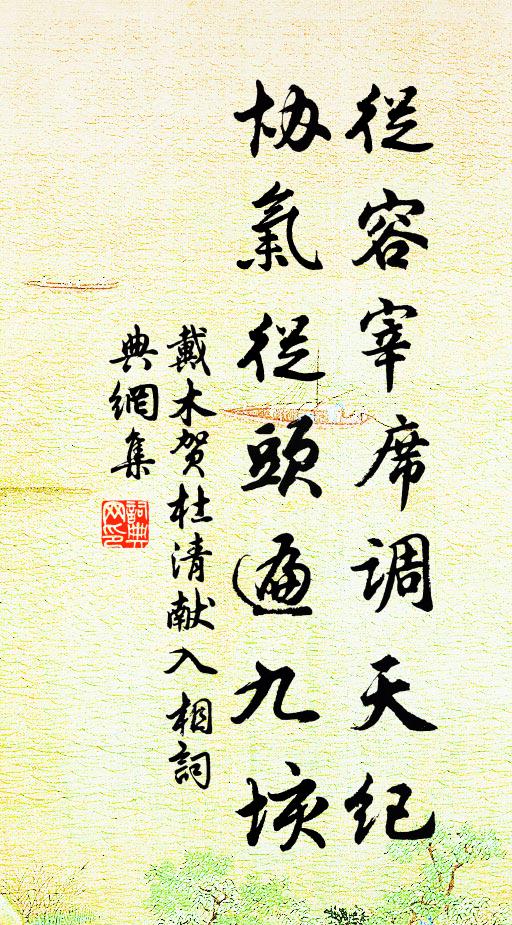 從容宰席調天紀
協氣從頭遍九垓
戴木賀杜清献入相詞
典網集
詞典網印